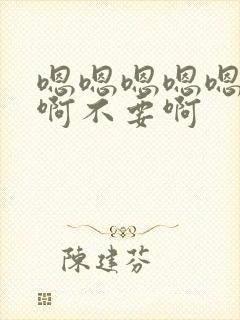 嗯嗯嗯嗯嗯
啊不要啊
陳建芬